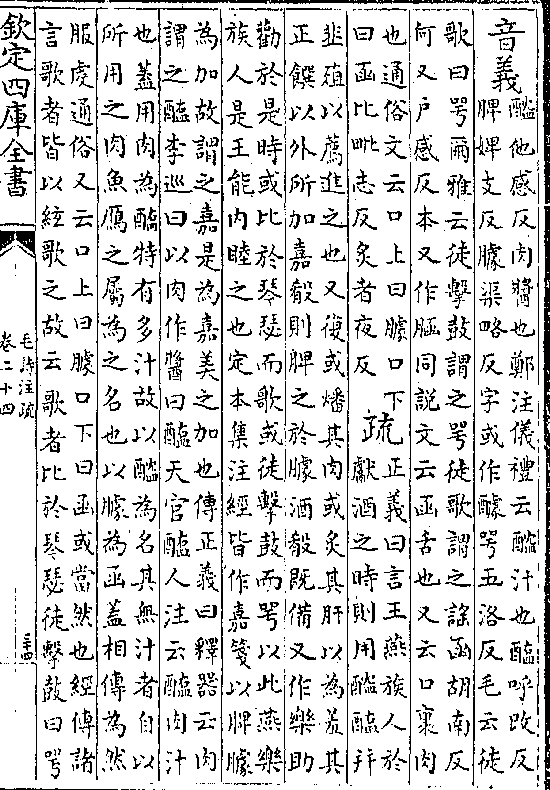 音義
醓他感反肉醬也鄭注儀禮云醓汁也醢呼改反
脾婢支反臄渠略反字或作醵咢五洛反毛云徒
歌曰咢爾雅云徒擊鼓謂之咢徒歌謂之謡函胡南反
何又户感反本又作䐄同説文云函舌也又云口裏肉
也通俗文云口上曰臄口下
曰函比毗志反炙者夜反
疏
正義曰言王燕族人於
獻酒之時則用醓醢并
韭菹以薦進之也又復或燔其肉或炙其肝以為羞其
正饌以外所加嘉殽則脾之於臄酒殽既備又作樂助
勸於是時或比於琴瑟而歌或徒擊鼓而咢以此燕樂
族人是王能内睦之也定本集注經皆作嘉箋以脾臄
為加故謂之嘉是為嘉美之加也傳正義曰釋器云肉
謂之醢李巡曰以肉作醬曰醢天官醢人注云醓肉汁
也蓋用肉為醢特有多汁故以醓為名其無汁者自以
所用之肉魚鴈之屬為之名也以臄為函蓋相傳為然
服虔通俗又云口上曰臄口下曰函或當然也經傳諸
言歌者皆以絃歌之故云歌者比於琴瑟徒擊鼓曰咢
欽定四庫全書
毛詩注疏
卷二十四